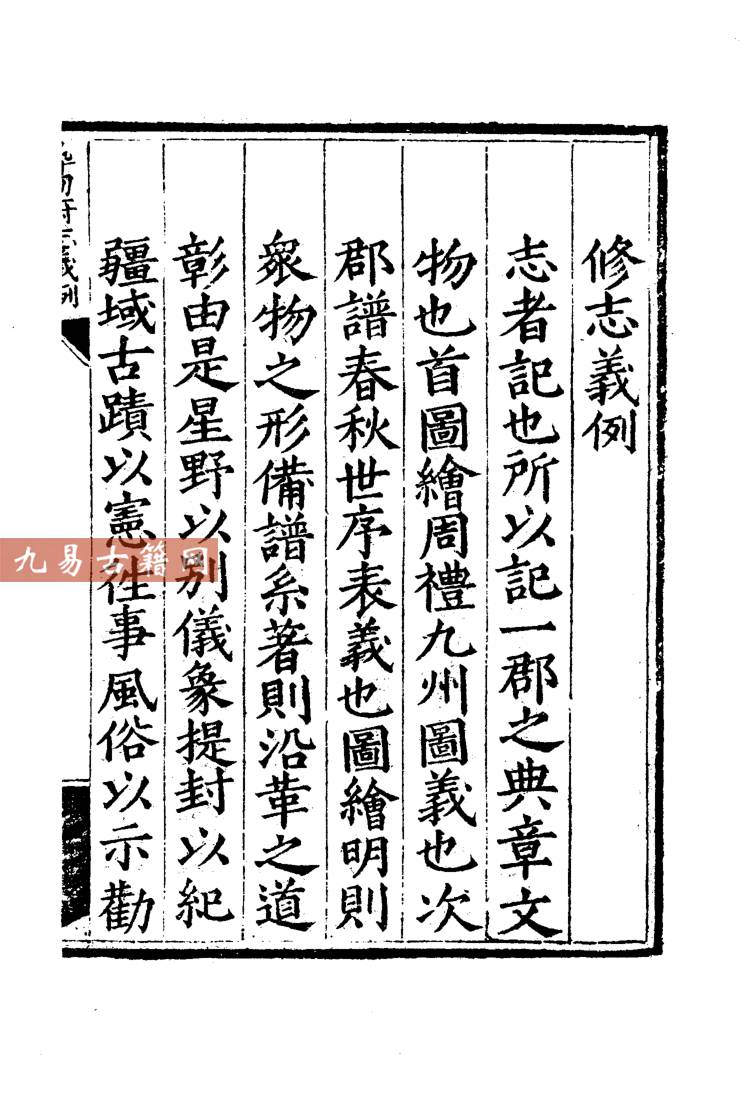 修志義例
志者記也所以記一郡之典章文
物也首圖繪周禮九州圖義也次
郡譜春秋世序表義也圖繪明則
眾物之形備譜系著則沿革之道
彰由是星野以別儀象提封以紀
疆域古蹟以憲往事風俗以示勸
義例
九易古籍网